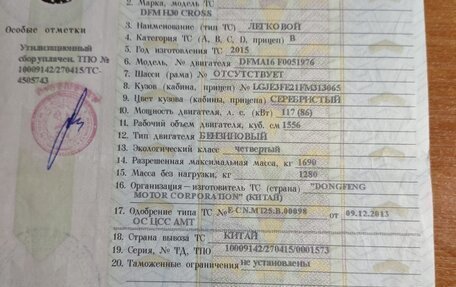 Особые отметки
Утилизационный
сбор уплачен. ТПО №
10009142/270415/ТС-
4505743
2. Марка, модель ТС
DFM H30 CROSS
3. Наименование (тип ТС) ЛЕГКОВОЙ
4. Категория ТС (А, В, С, D, прицеп) B
5. Год изготовления ТС 2015
6. Модель, № двигателя DFMA16 F0051976
7. Шасси (рама) № ОТСУТСТВУЕТ
8. Кузов (кабина, прицеп) № LGJE3FE21FM313065
9. Цвет кузова (кабины, прицепа) СЕРЕБРИСТЫЙ
10. Мощность двигателя, л. с. (кВт) 117 (86)
11. Рабочий объем двигателя, куб. см 1556
12. Тип двигателя БЕНЗИНОВЫЙ
13. Экологический класс четвертый
14. Разрешенная максимальная масса, кг 1690
15. Масса без нагрузки, кг 1280
16. Организация—изготовитель ТС (страна) "DONGFENG
MOTOR CORPORATION" (КИТАЙ)
17. Одобрение типа ТС № E-CN.MT25.B.00898 от 09.12.2013
ОС ЦСС АМТ
18. Страна вывоза ТС КИТАЙ
19. Серия, № ТД, ТПО 10009142/270415/0001573
20. Таможенные ограничения не установлены